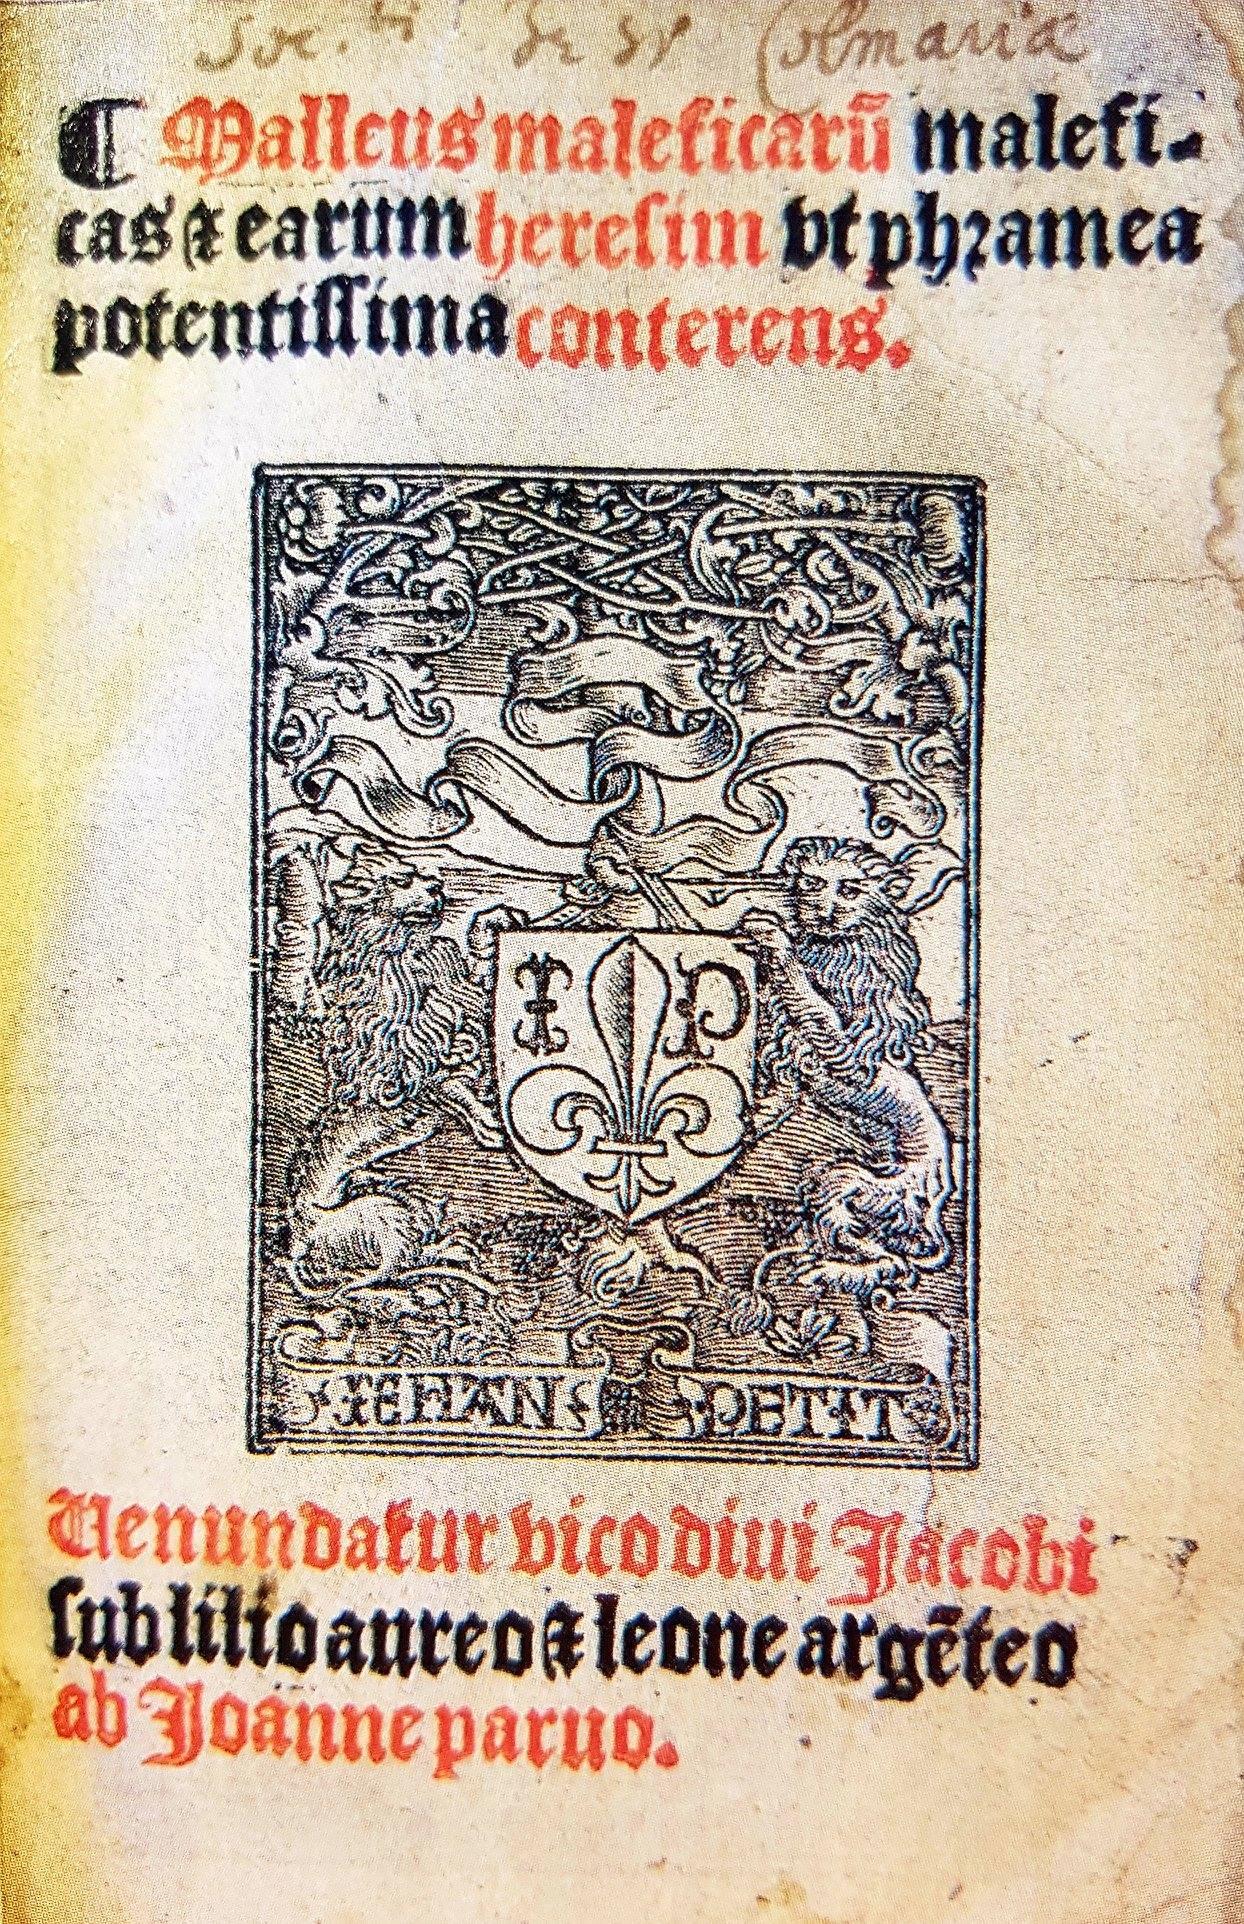 Colmariæ
¶ Malleus maleficarũ malefi-
cas ⁊ earum hereſim vt phꝛamea
potentiſſima conterens.
I P
IEHAN PETIT
Uenundatur vico diui Jacobi
ſub lilio aureo ⁊ leone argẽteo
ab Joanne paruo.